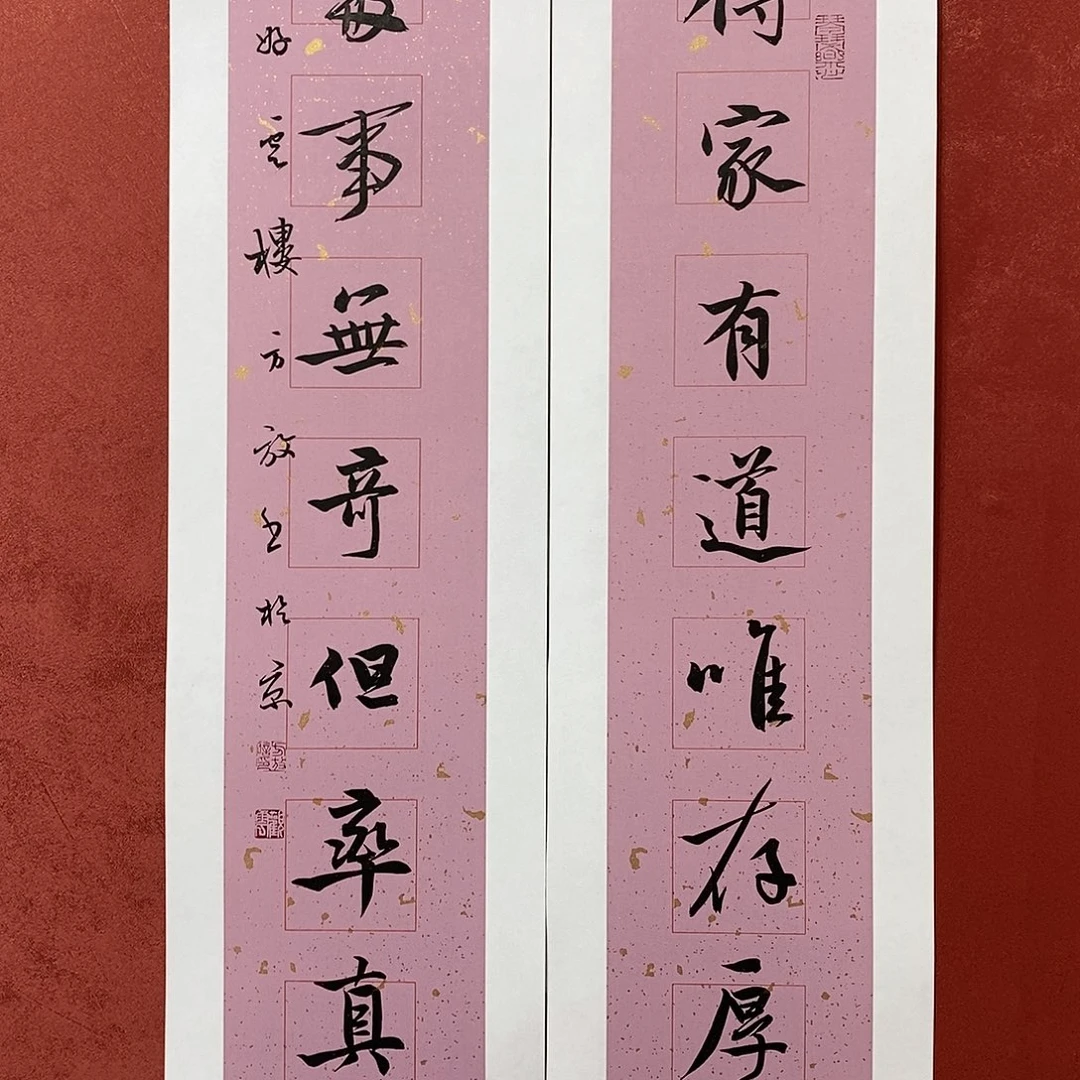 家有道唯存厚
事無奇但率真
好雲樓方放书於京